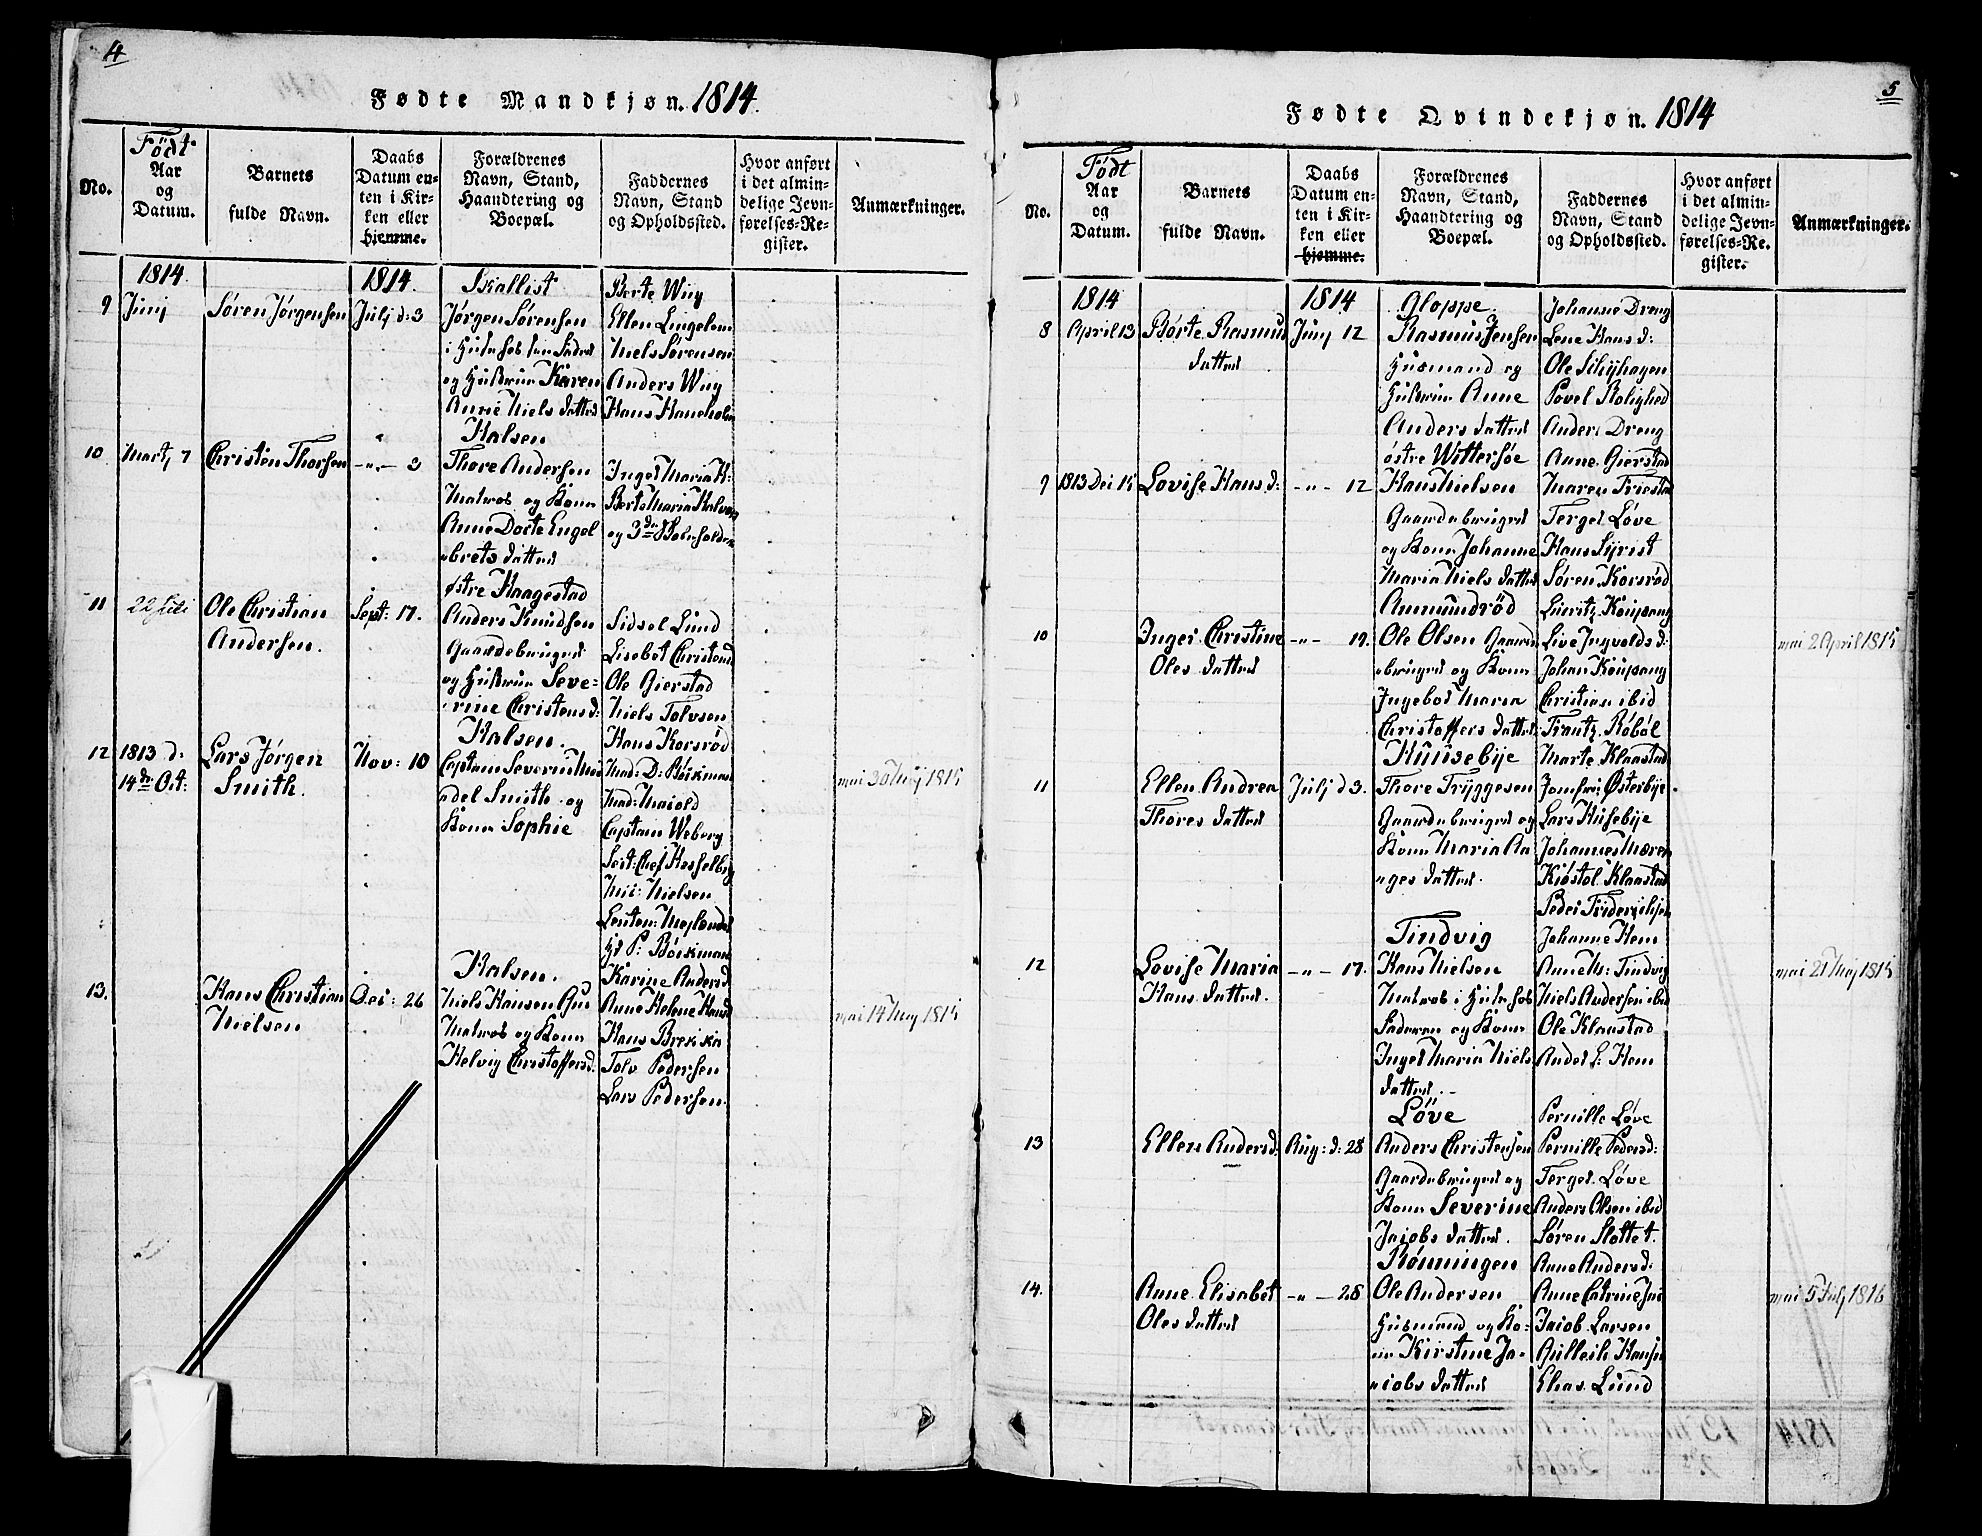 4
Fødte Mandkjøn. 1814.
No.
Født
Aar
og
Datum.
Barnets
fulde Navn.
Daabs
Datum en-
ten i Kir-
ken eller
hjemme.
Forældrenes
Navn, Stand,
Haandtering og
Boepæl.
Faddernes
Navn, Stand
og Opholdssted.
Hvor anført
i det almin-
delige Jevn-
førelses-Re-
gister.
Anmærkninger.
1814.
1814.
9
Junj
Søren Jørgensen
Julj d: 3
Skallist
Jørgen Sørensen
og Hustrue Karen
Anne Niels datter
Berte Wiig
Ellen Lingelem
Niels Sørensen
Anders Wiig
Hans Haneholm
10
Mart, 7
Christen Thorsen
-"- 3
Halsen
Thore Andersen
Matros og Kone
Anne Dorte Engel
"brets datter
Inger Maria H:
Berte Maria Halvors
og 3de
11
22 Juli
Ole Christian
Andersen.
Sept: 17.
Østre Haagestad
Anders Knudsen
Gaardebruger
og Hustrue Seve=
"rine Christens d:
Sidsel Lund
Lisebet Christensd
Ole Gierstad
Niels Tolvsen
Hans Korsrød
12
1813 d:
14de Oct:
Lars Jørgen
Smith.
Nov: 10
Halsen.
Captain Severin
"del Smith og
Kone Sophie
Mad: D: Böckman
Captain Weberg
Hesselberg
Nielsen
P: Böckman
mai 30 Maj 1815
13.
Hans Christian
Nielsen
Dec: 26
Halsen.
Niels Hansen
Matros og Kone
Helvig Christoffersd:
Karine Andersd
Anne Helene Hansd
Hans Brekke
Tolv Pedersen
Lars Pedersen.
mai 14 Maj 1815
5
Fødte Qvindekjøn. 1814
No.
Født
Aar
og
Datum.
Barnets
fulde Navn.
Daabs
Datum en-
ten i Kir-
ken eller
hjemme.
Forældrenes
Navn, Stand,
Haandtering og
Boepæl.
Faddernes
Navn, Stand
og Opholdssted.
Hvor anført
i det almin-
delige Jevn-
førelses-Re-
gister.
Anmærkninger.
1814
1814
8
April 13
Børte Rasmus
datter
Junj 12
Gloppe.
Rasmus Jensen
Husmand og
Hustrue Anne
Anders datter
Johanne Dreng
Lene Hans d:
Ole
Povel Rolighed
Anders Dreng
Anne Gierstad
9
1813 Dec 15
Lovise Hans d:
-"- 12
østre Wittersøe
Hans Nielsen
Gaardebruger
og Kone Johanne
Maria Niels datter
Maren Friestad
Terger Løve
Hans Syrist
Søren Korsrød
10
Inger Christine
Oles datter
-"- 19.
Ammundrød
Ole Olsen Gaard
"bruger og Kone
Ingebor Maria
Christoffers datter
Kaupang
Live Ingvolds d:
Johan Kaupang
Christian ibid
Frantz Røbøl
Marte Klaastad
mai 2 April 1815
11
Ellen Andrea
Thores datter
Julj d 3.
Hunsebye
Thore Tryggesen
Gaardebruger og
Kone Maria Aa
"ges datter.
Jomfrue Østerbye
Lars Husebye
Johannes Mæren
Kiøstol Klaastad
Peder
Johanne Hem
12
Lovise Maria
Hans datter.
-"- 17.
Tindvig
Hans Nielsen
Fædren og Kone
Inger Maria Niels
datter.
Anne M: Tindvig
Niels Andersen ibid
Ole Klaastad
Ander L: Hem
mai 21 Maj 1815
13
Ellen Andersd:
Aug: d: 28
Löve
Anders Christensen
Gaardebruger og
Kone Severine
Jacobs datter.
Pernille Løve
Pernille Pedersd:
Terger Løve
Anders Olsen ibid
Søren Slottet.
Anne Andersd:
14.
Anne Elisabet
Oles datter
-"- 28
Rønningen
Ole Andersen
Husmand og Ko=
"ne Kirstine Ja=
"cobs datter
Anne Catrine
Jacob Larsen
Elias Lund
mai 5 Julj 1816